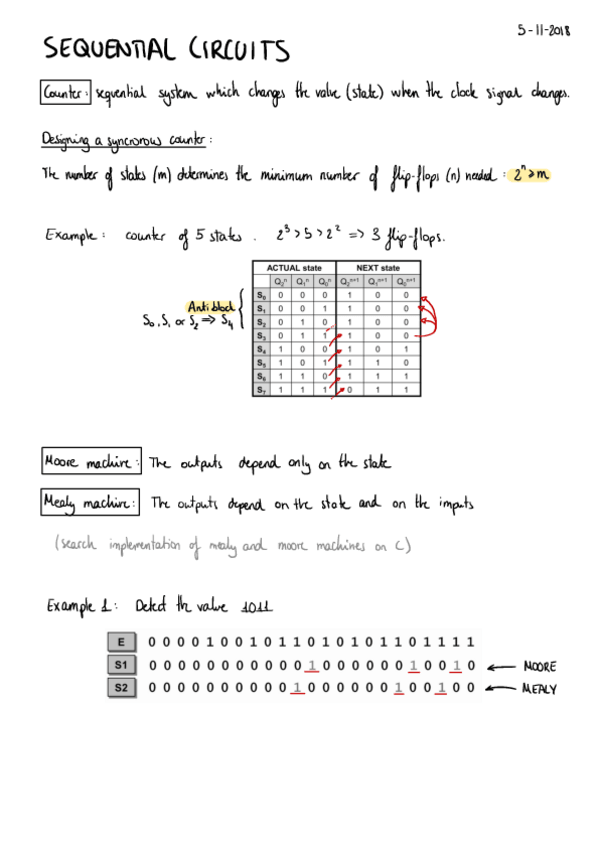 5-11-2018
SEQUENTIAL CIRCUITS
Counter: sequential system which changes the value (state) when the clock signal changes.
Designing a syncronous counter:
The number of states (m) determines the minimum number of flip-flops (n) needed: 2ⁿ≥m
Example: counter of 5 states. 2³>5>2² => 3 flip-flops.
ACTUAL state NEXT state
Q₂ⁿ Q₁ⁿ Q₀ⁿ Q₂ⁿ⁺¹ Q₁ⁿ⁺¹ Q₀ⁿ⁺¹
S₀ 0 0 0 1 0 0
Anti block
S₁ 0 0 1 1 0 0
S₀, S₁ or S₂ => S₄
S₂ 0 1 0 1 0 0
S₃ 0 1 1 1 0 0
S₄ 1 0 0 1 0 1
S₅ 1 0 1 1 1 0
S₆ 1 1 0 1 1 1
S₇ 1 1 1 0 1 1
Moore machine: The outputs depend only on the state
Mealy machine: The outputs depend on the state and on the imputs
(search implementation of mealy and moore machines on C)
Example 1: Detect the value 1011
E 0 0 0 0 1 0 0 1 0 1 1 0 1 0 1 0 1 1 0 1 1 1 1
S1 0 0 0 0 0 0 0 0 0 0 0 1 0 0 0 0 0 0 1 0 0 1 0 ← MOORE
S2 0 0 0 0 0 0 0 0 0 0 1 0 0 0 0 0 0 1 0 0 1 0 0 ← MEALY